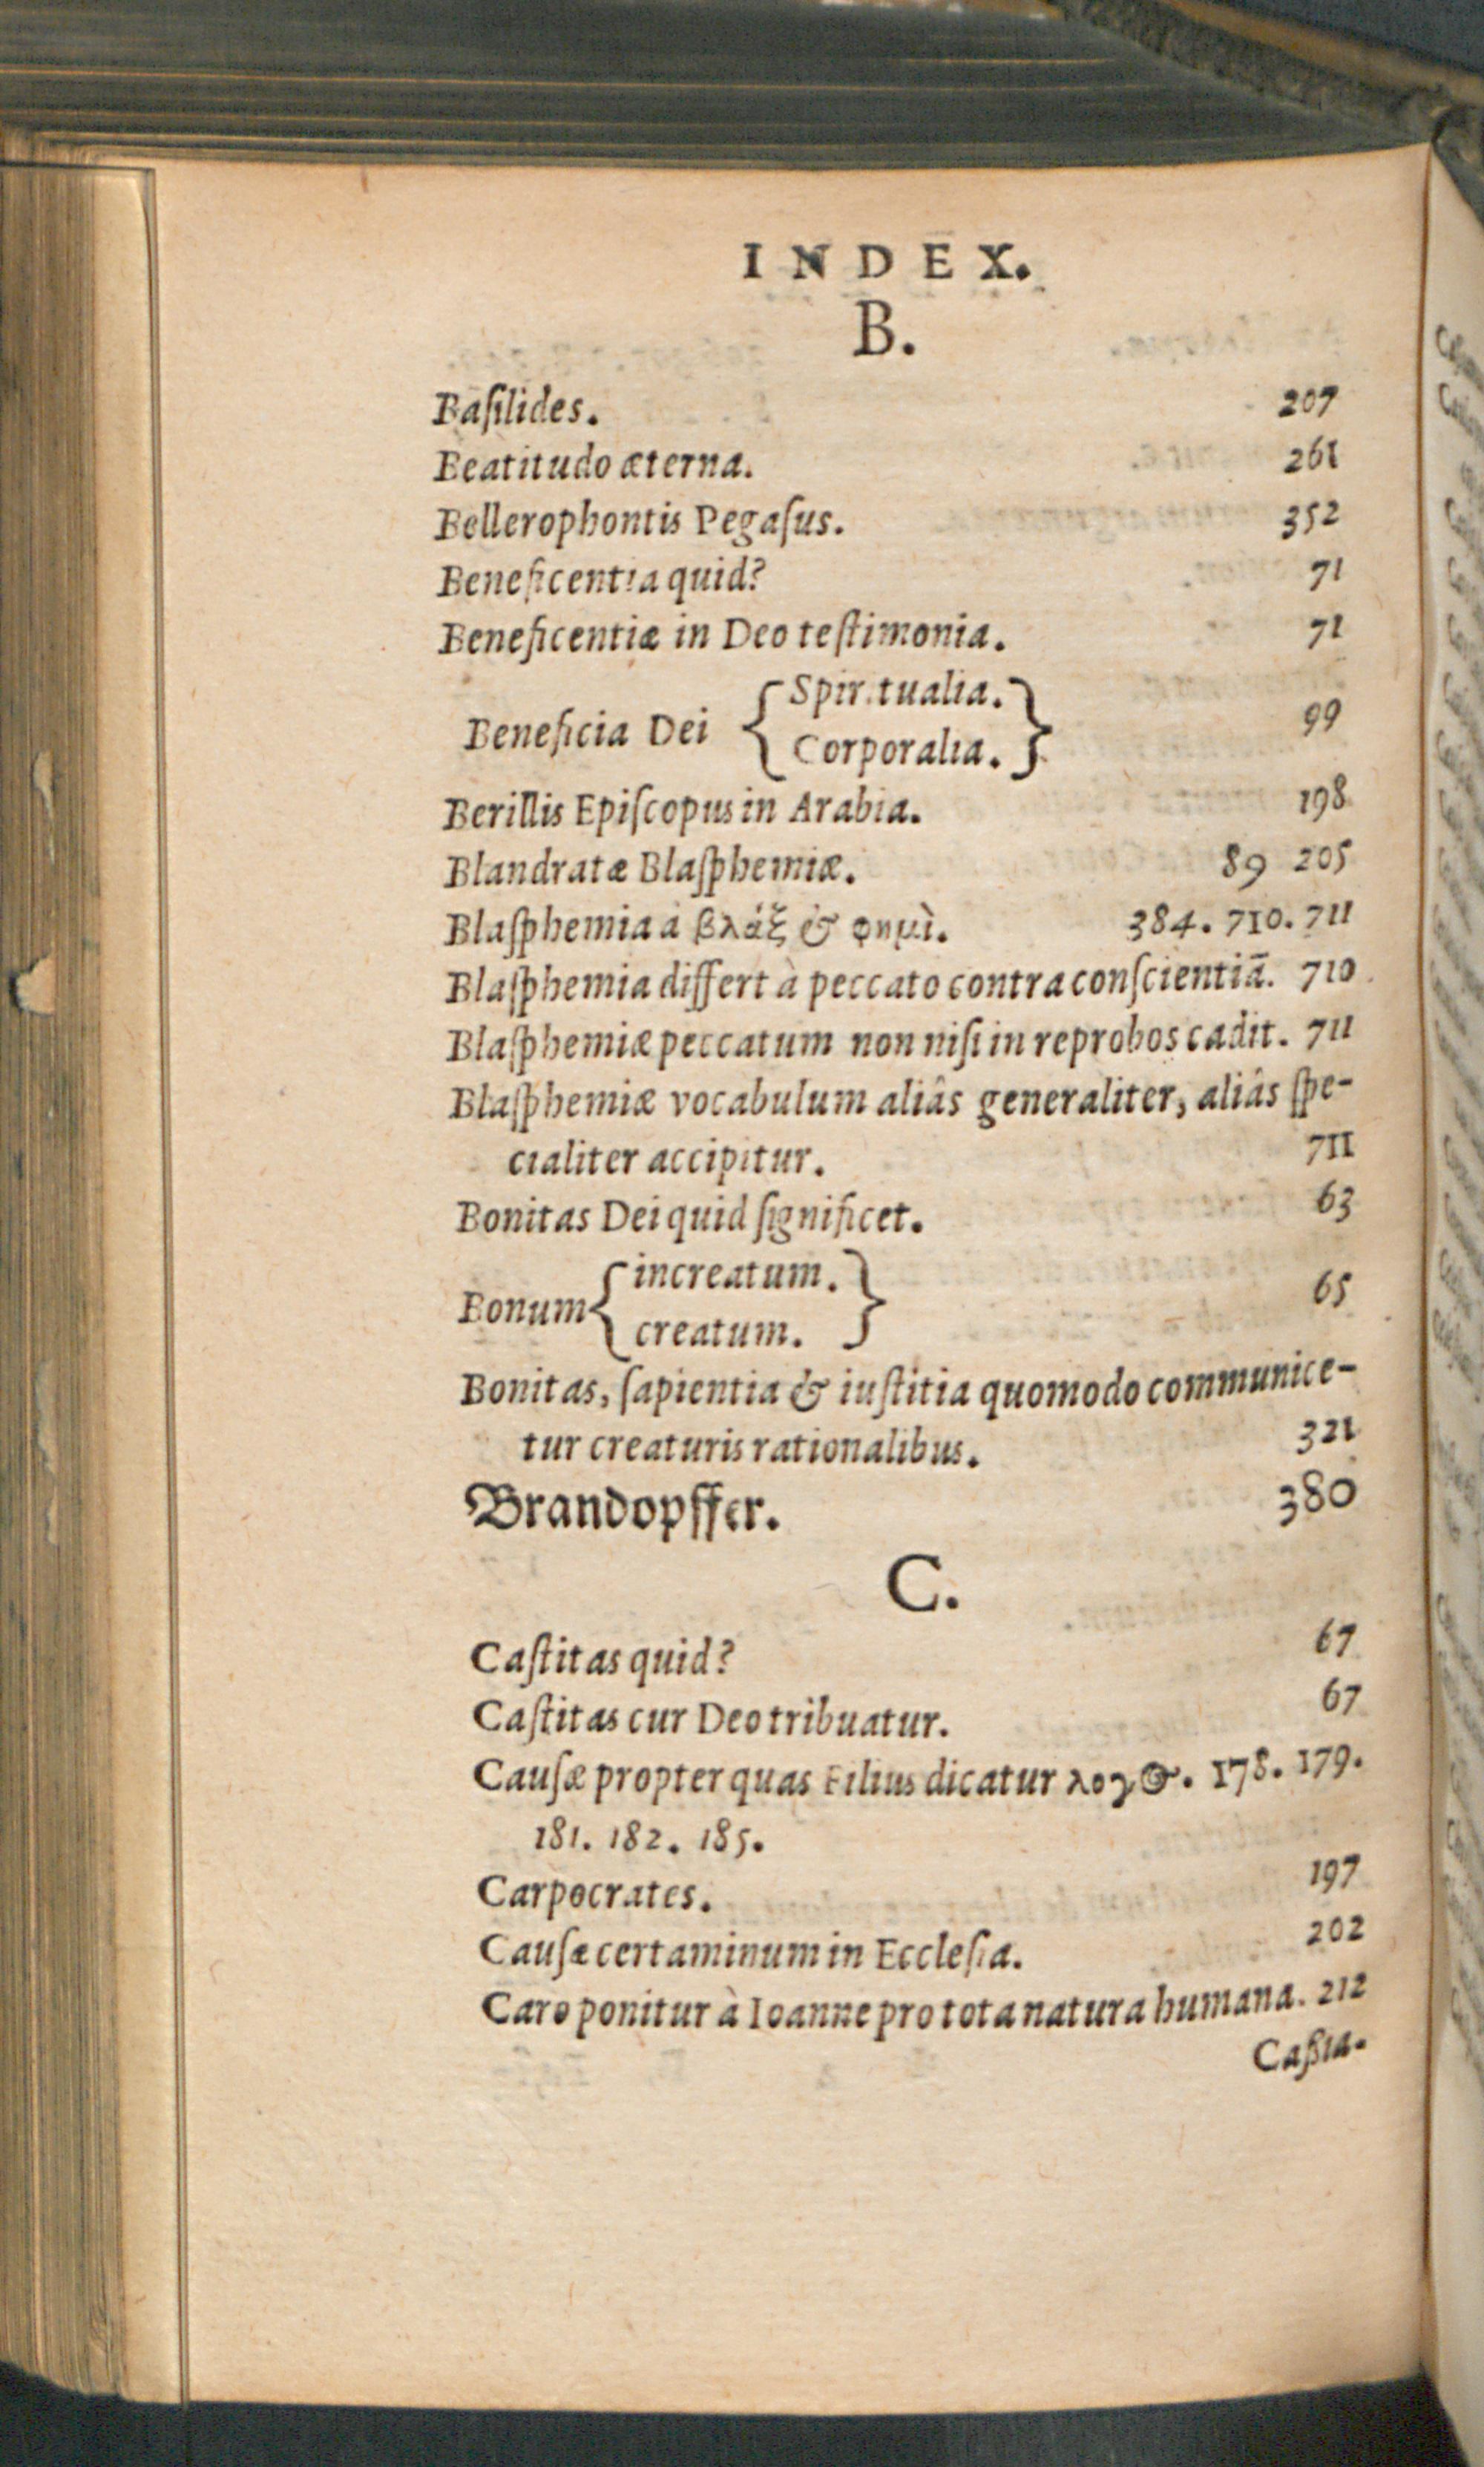 INDEX.
B.
Baſilides. 207
Beatitudo æterna. 261
Bellerophontis Pegaſus. 352
Beneficentia quid? 71
Beneficentiæ in Deo teſtimonia. 71
Beneficia Dei { Spiritualia. Corporalia. } 99
Berillis Epiſcopus in Arabia. 198
Blandratæ Blaſphemiæ. 89 205
Blaſphemia à βλάξ & φημὶ. 384. 710. 711
Blaſphemia differt à peccato contra conſcientiā. 710
Blaſphemiæ peccatum non niſi in reprobos cadit. 711
Blaſphemiæ vocabulum aliâs generaliter, aliâs ſpe-
cialiter accipitur. 711
Bonitas Dei quid ſignificet. 63
Bonum { increatum. creatum. } 65
Bonitas, ſapientia & iuſtitia quomodo communice-
tur creaturis rationalibus. 321
Brandopffer. 380
C.
Caſtitas quid? 67
Caſtitas cur Deo tribuatur. 67
Cauſæ propter quas Filius dicatur λογ𝛐ς. 178. 179.
181. 182. 185.
Carpocrates. 197
Cauſæ certaminum in Eccleſia. 202
Caro ponitur à Ioanne pro tota natura humana. 212
Caßia.